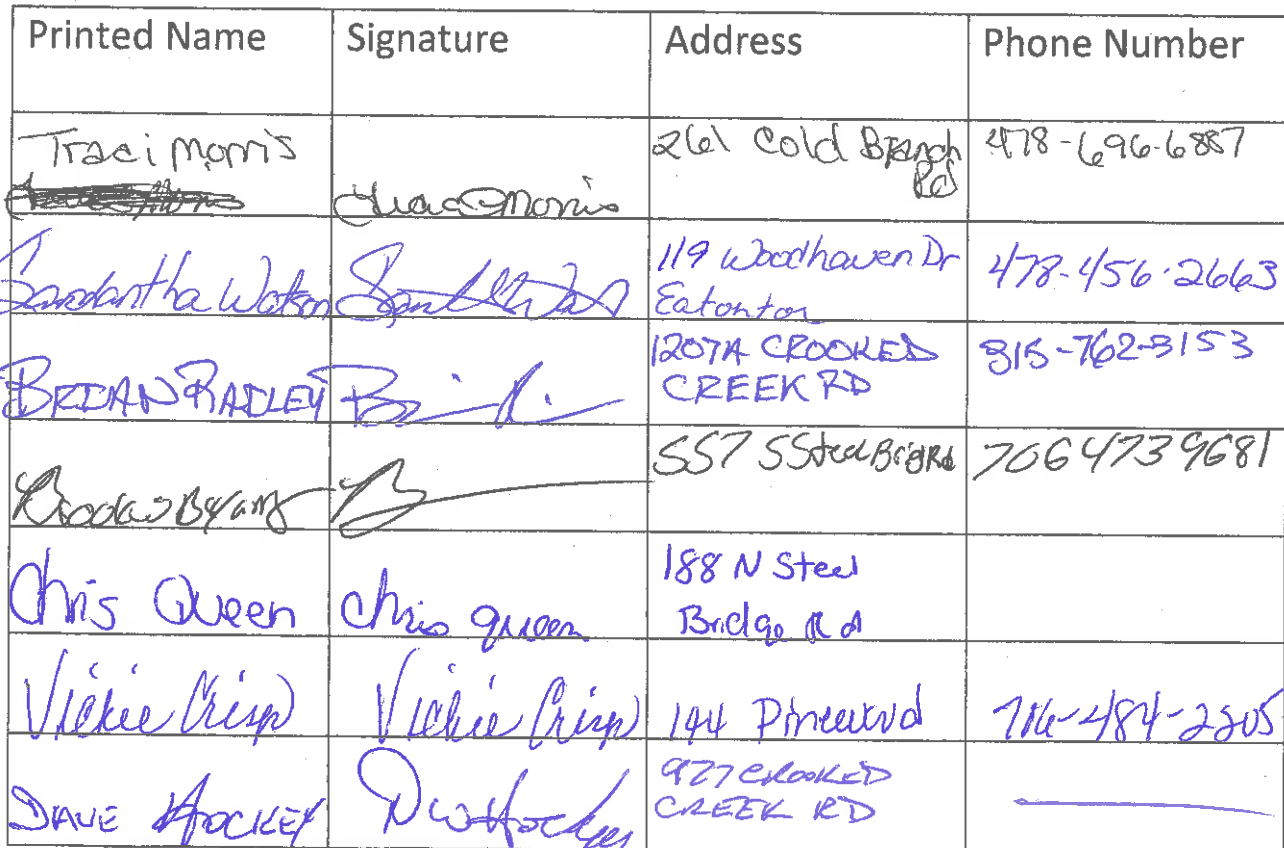 Printed Name Signature Address Phone Number
Traci Morris 261 Cold Branch Rd 478-696-6887
Traci Morris
Samantha Watson 119 Woodhaven Dr 478-456-2663
Eatonton
BRIAN RADLEY 1207A CROOKED 815-762-3153
CREEK RD
557 S Steel Brig Rd 7064739681
Chris Queen chris queen 188 N Steel
Bridge Rd
Vickie Crisp Vickie Crisp 144 706-484-2205
DAVE HOCKEY DW Hockey 927 CROOKED
CREEK RD